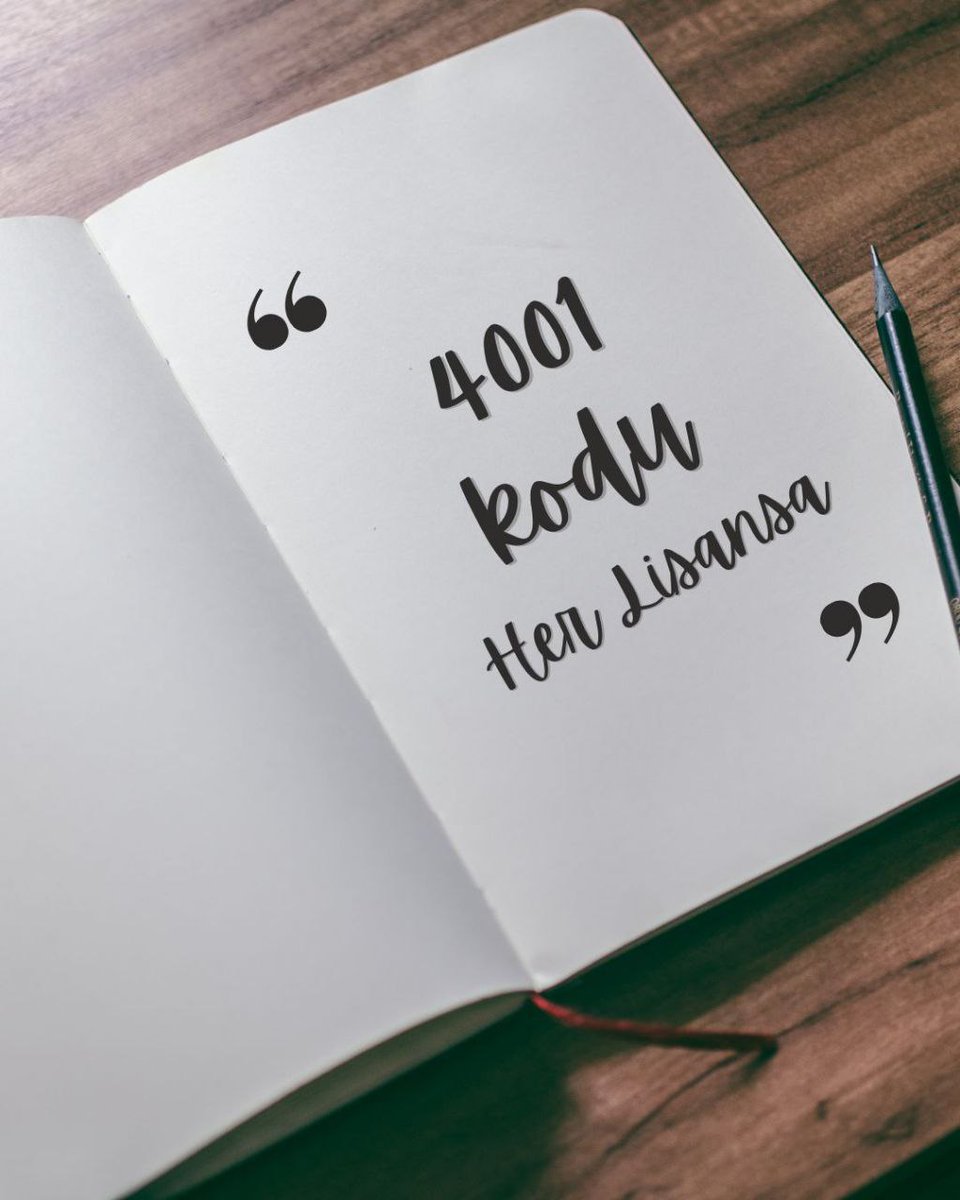 “
4001
kodu
Her Lisansa
”